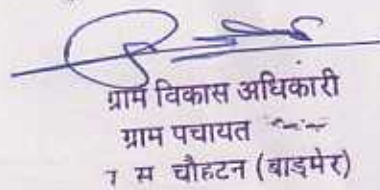 ग्राम विकास अधिकारी
ग्राम पचायत
स चौहटन (बाड़मेर)